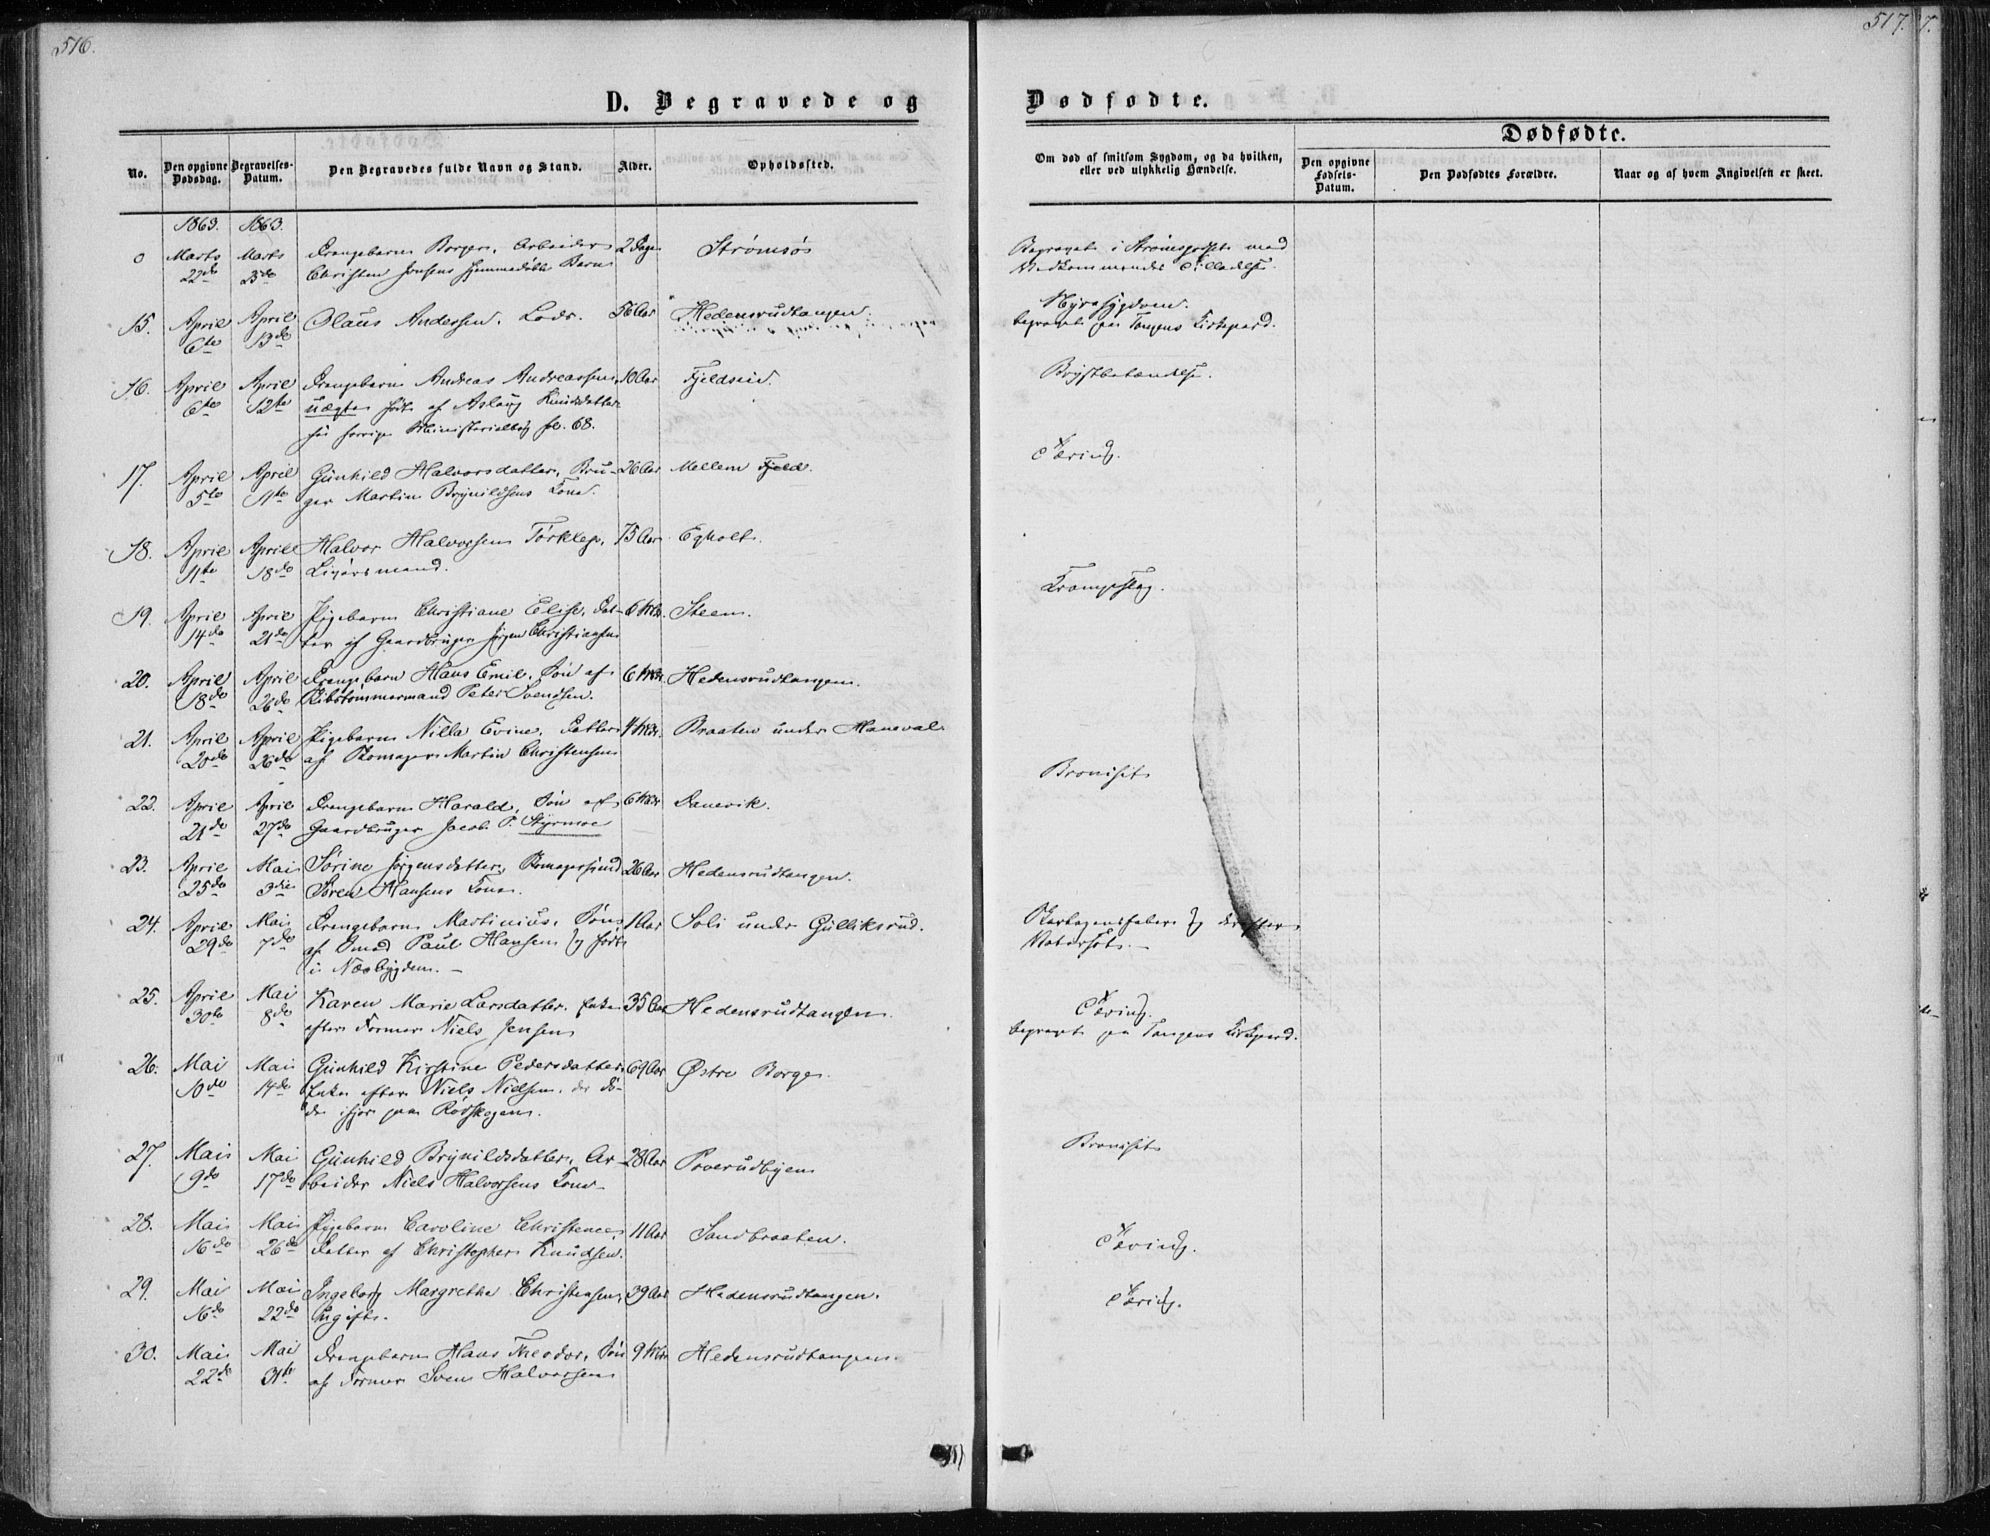 516.
517.
7.
D. Begravede og
Dødfødte.
No.
Den opgivne Dødsdag.
Begravelses-Datum.
Den Begravedes fulde Navn og Stand.
Alder.
Opholdssted.
Om død af smitsom Sygdom, og da hvilken, eller ved ulykkelig Hændelse.
Dødfødte.
Den opgivne Fødsels-Datum.
Den Dødfødtes Forældre.
Naar og af hvem Angivelsen er skeet.
1863. 1863.
0 Marts Marts Drengebarn Borger, Arbeider 2 Dage Strømsø Begravet i Strømsgodset med
22de 23de Christen Jensens hjemmedøbte Barn Vedkommendes Tilladelse.
15. April April Olaus Andersen, Lods. 56 Aar Hedensrudtangen.
6te 13de begravet paa Tangens Kirkegaard.
16. April April Drengebarn Andreas Andreassen, 10 Aar Fjeldseie. Brystbetændelse.
6te 12te uægte født af Aslaug Knudsdatter
forrige Ministerialbog fol. 68.
17. April April Gunhild Halvorsdatter, Bru- 26 Aar Mellem Fjeld. Tæring.
5te 11te ger Martin Brynildsens Kone.
18. April April Halvor Halvorsen Tørklep, 75 Aar Egholt.
11te 18de Ligørsmand.
19. April April Pigebarn Christiane Elise, Dat- 6 Mdr. Steen. Krampeslag.
14de 21de ter af Gaardbruger Jørgen Christiansen
20. April April Drengebarn Hans Emil, Søn af 6 Mdr. Hedensrudtangen.
18de 26de Skibstømmermand Peter Svendsen.
21. April April Pigebarn Nilla Evine, Datter 4 Mdr. Braaten under Haneval
20de 26de af Skomager Martin Christensen
22. April April Drengebarn Harald, Søn af 6 Mdr. Danevik. Bronchit
21de 27de Gaardbruger Jacob P. Styrmoe
23. April Mai Sørine Jørgensdatter, Skomagersvend 26 Aar Hedensrudtangen.
25de 3die Søren Hansens Kone.
24. April Mai Drengebarn Martinius, Søn 1 Aar Soli under Gulliksrud. Skarlagensfeber og derefter
29de 7de af Smed Paul Hansen og født Vatersot. –
i Næsbygden. –
25. April Mai Karen Marie Larsdatter, Enke 35 Aar Hedensrudtangen. Tæring.
30te 8de efter Former Niels Jensen begravet paa Tangens Kirkegaard.
26. Mai Mai Gunhild Kirstine Pedersdatter 69 Aar Østre Borge.
10de 14de Enke efter Niels Nielsen, der dø-
de ifjor paa Rødskogen.
27. Mai Mai Gunhild Brynildsdatter, Ar- 28 Aar Proverudbyen Bronchit
9de 17de beider Niels Halvorsens Kone
28. Mai Mai Pigebarn Caroline Christence, 11 Aar Sandbraaten. Tæring.
16de 26de Datter af Christopher Knudsen.
29. Mai Mai Ingeborg Margrethe Christensen, 39 Aar Hedensrudtangen. Tæring.
16de 22de Ugift.
30. Mai Mai Drengebarn Hans Theodor, Søn 9 Mdr. Hedensrudtangen.
22de 31te af Former Sven Halvorsen